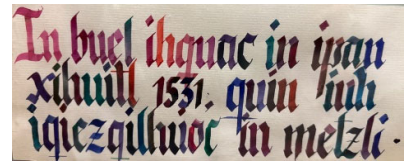 In buel ihquac in ipan
xihuitl 1531. quin iuh
iqiezqilhuioc in metzli.